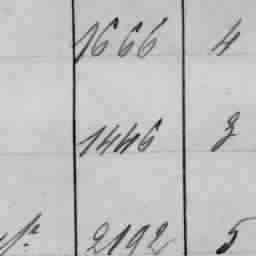 1666 4
1446 3
2192 5